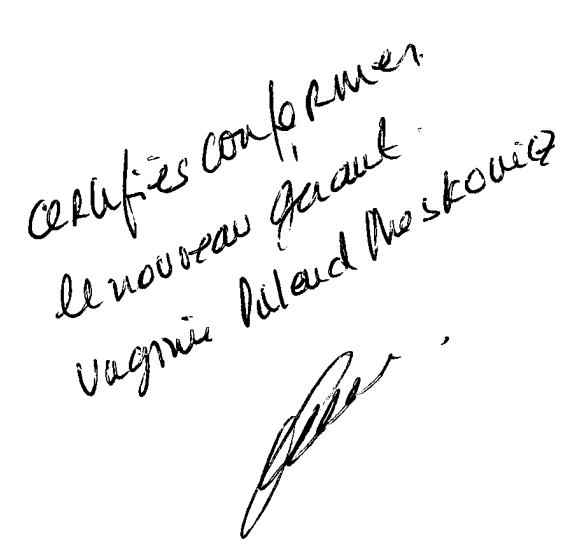 certifiés conformes
le nouveau gérant
Virginie Moskovicz